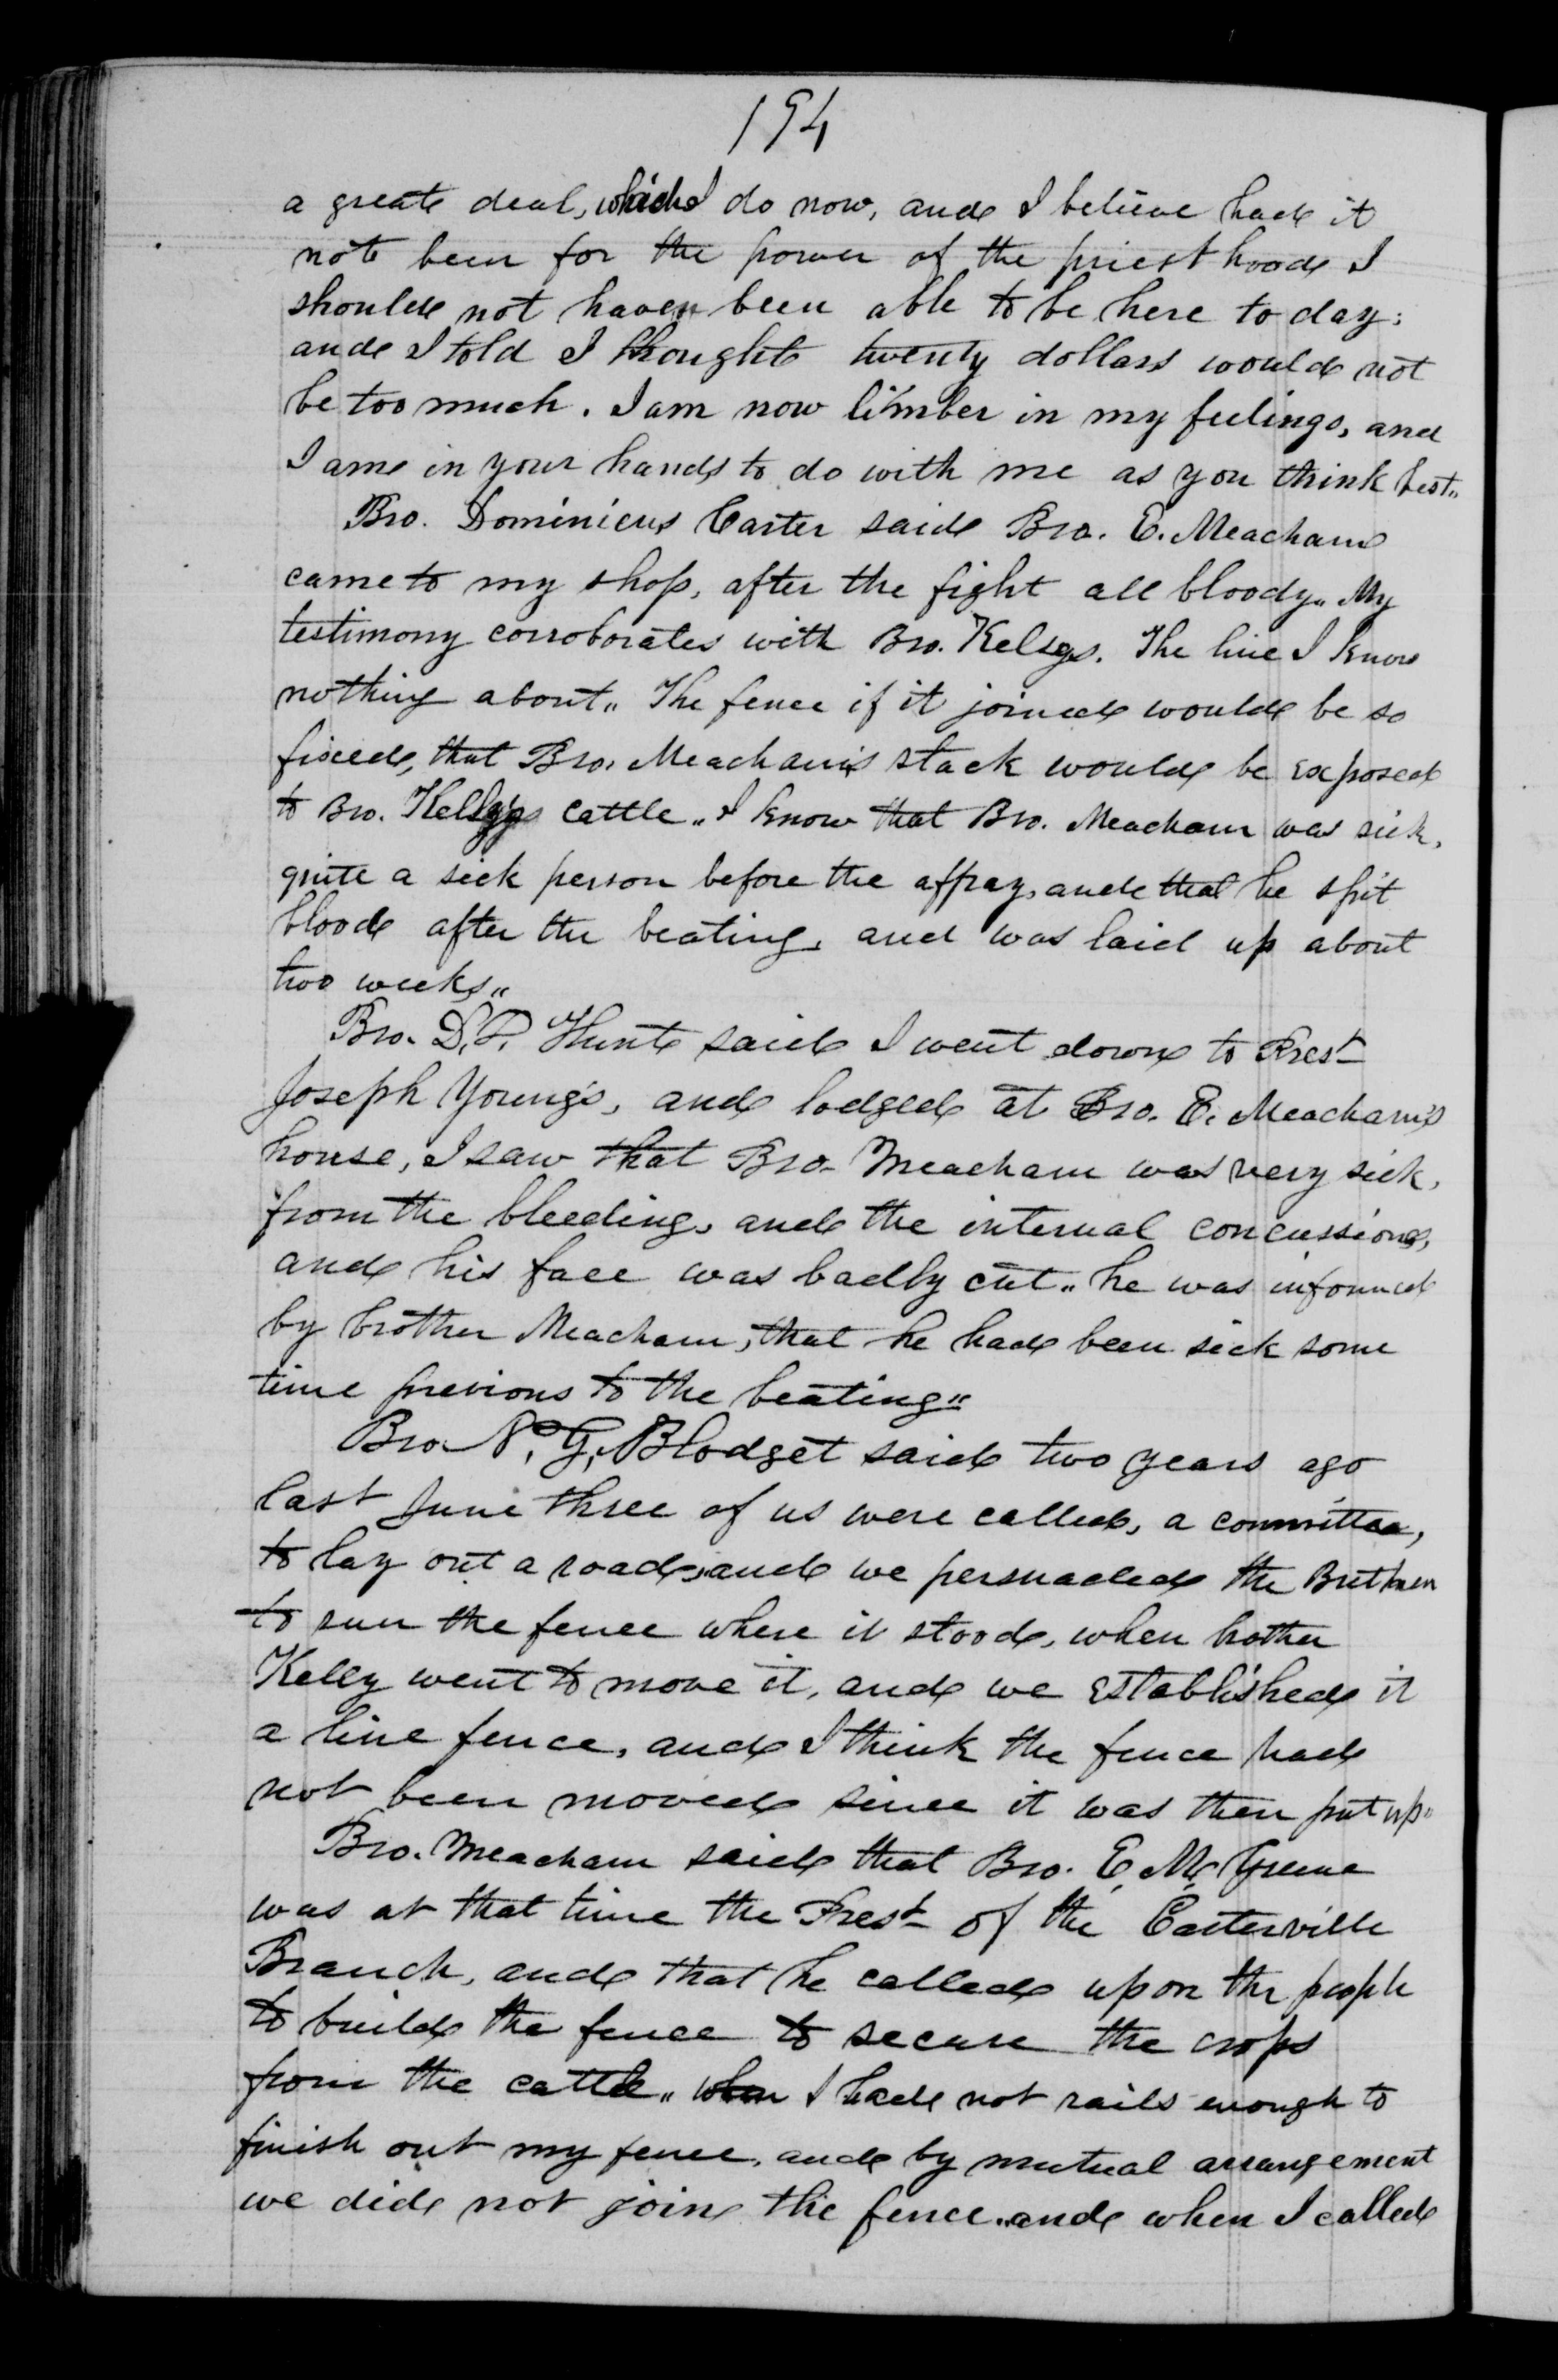 194
a great deal, which I do now, and I believe had it
not been for the power of the priest hood I
should not haven been able to be here to day;
and I told I thought twenty dollars would not
be too much. I am now limber in my feelings, and
I am in your hands to do with me as you think best„
Bro. Dominicus Carter said Bro. E. Meacham
came to my shop, after the fight all bloody„ My
testimony corroborates with Bro. Kelsgs. The line I know
nothing about„ The fence if it joined would be so
fixed, that Bro. Meacham's stack would be exposed
to Bro. cattle„ I know that Bro. Meacham was sick,
quite a sick person before the affray, and that he spit
blood after the beating, and was laid up about
two weeks„
Bro. D. P. Hunt said I went down to Prest
Joseph Young's, and lodged at Bro. E. Meacham's
house, I saw that Bro. Meacham was very sick,
from the bleeding, and the internal concussions,
and his face was badly cut„ he was informed
by brother Meacham, that he had been sick some
time previous to the beating„
Bro. N. G. Blodget said two years ago
last June three of us were called, a committee,
to lay out a road, and we persuaded the Brethren
to run the fence where it stood, when brother
Kelly went to move it, and we established it
a line fence, and I think the fence had
not been moved since it was then put up„
Bro. Meacham said that Bro. E. M. Greene
was at that time the Prest of the Carterville
Branch, and that he called upon the people
to build the fence to secure the crops
from the cattle„ when I had not rails enough to
finish out my fence, and by mutual arrangement
we did not join the fence„ and when I called